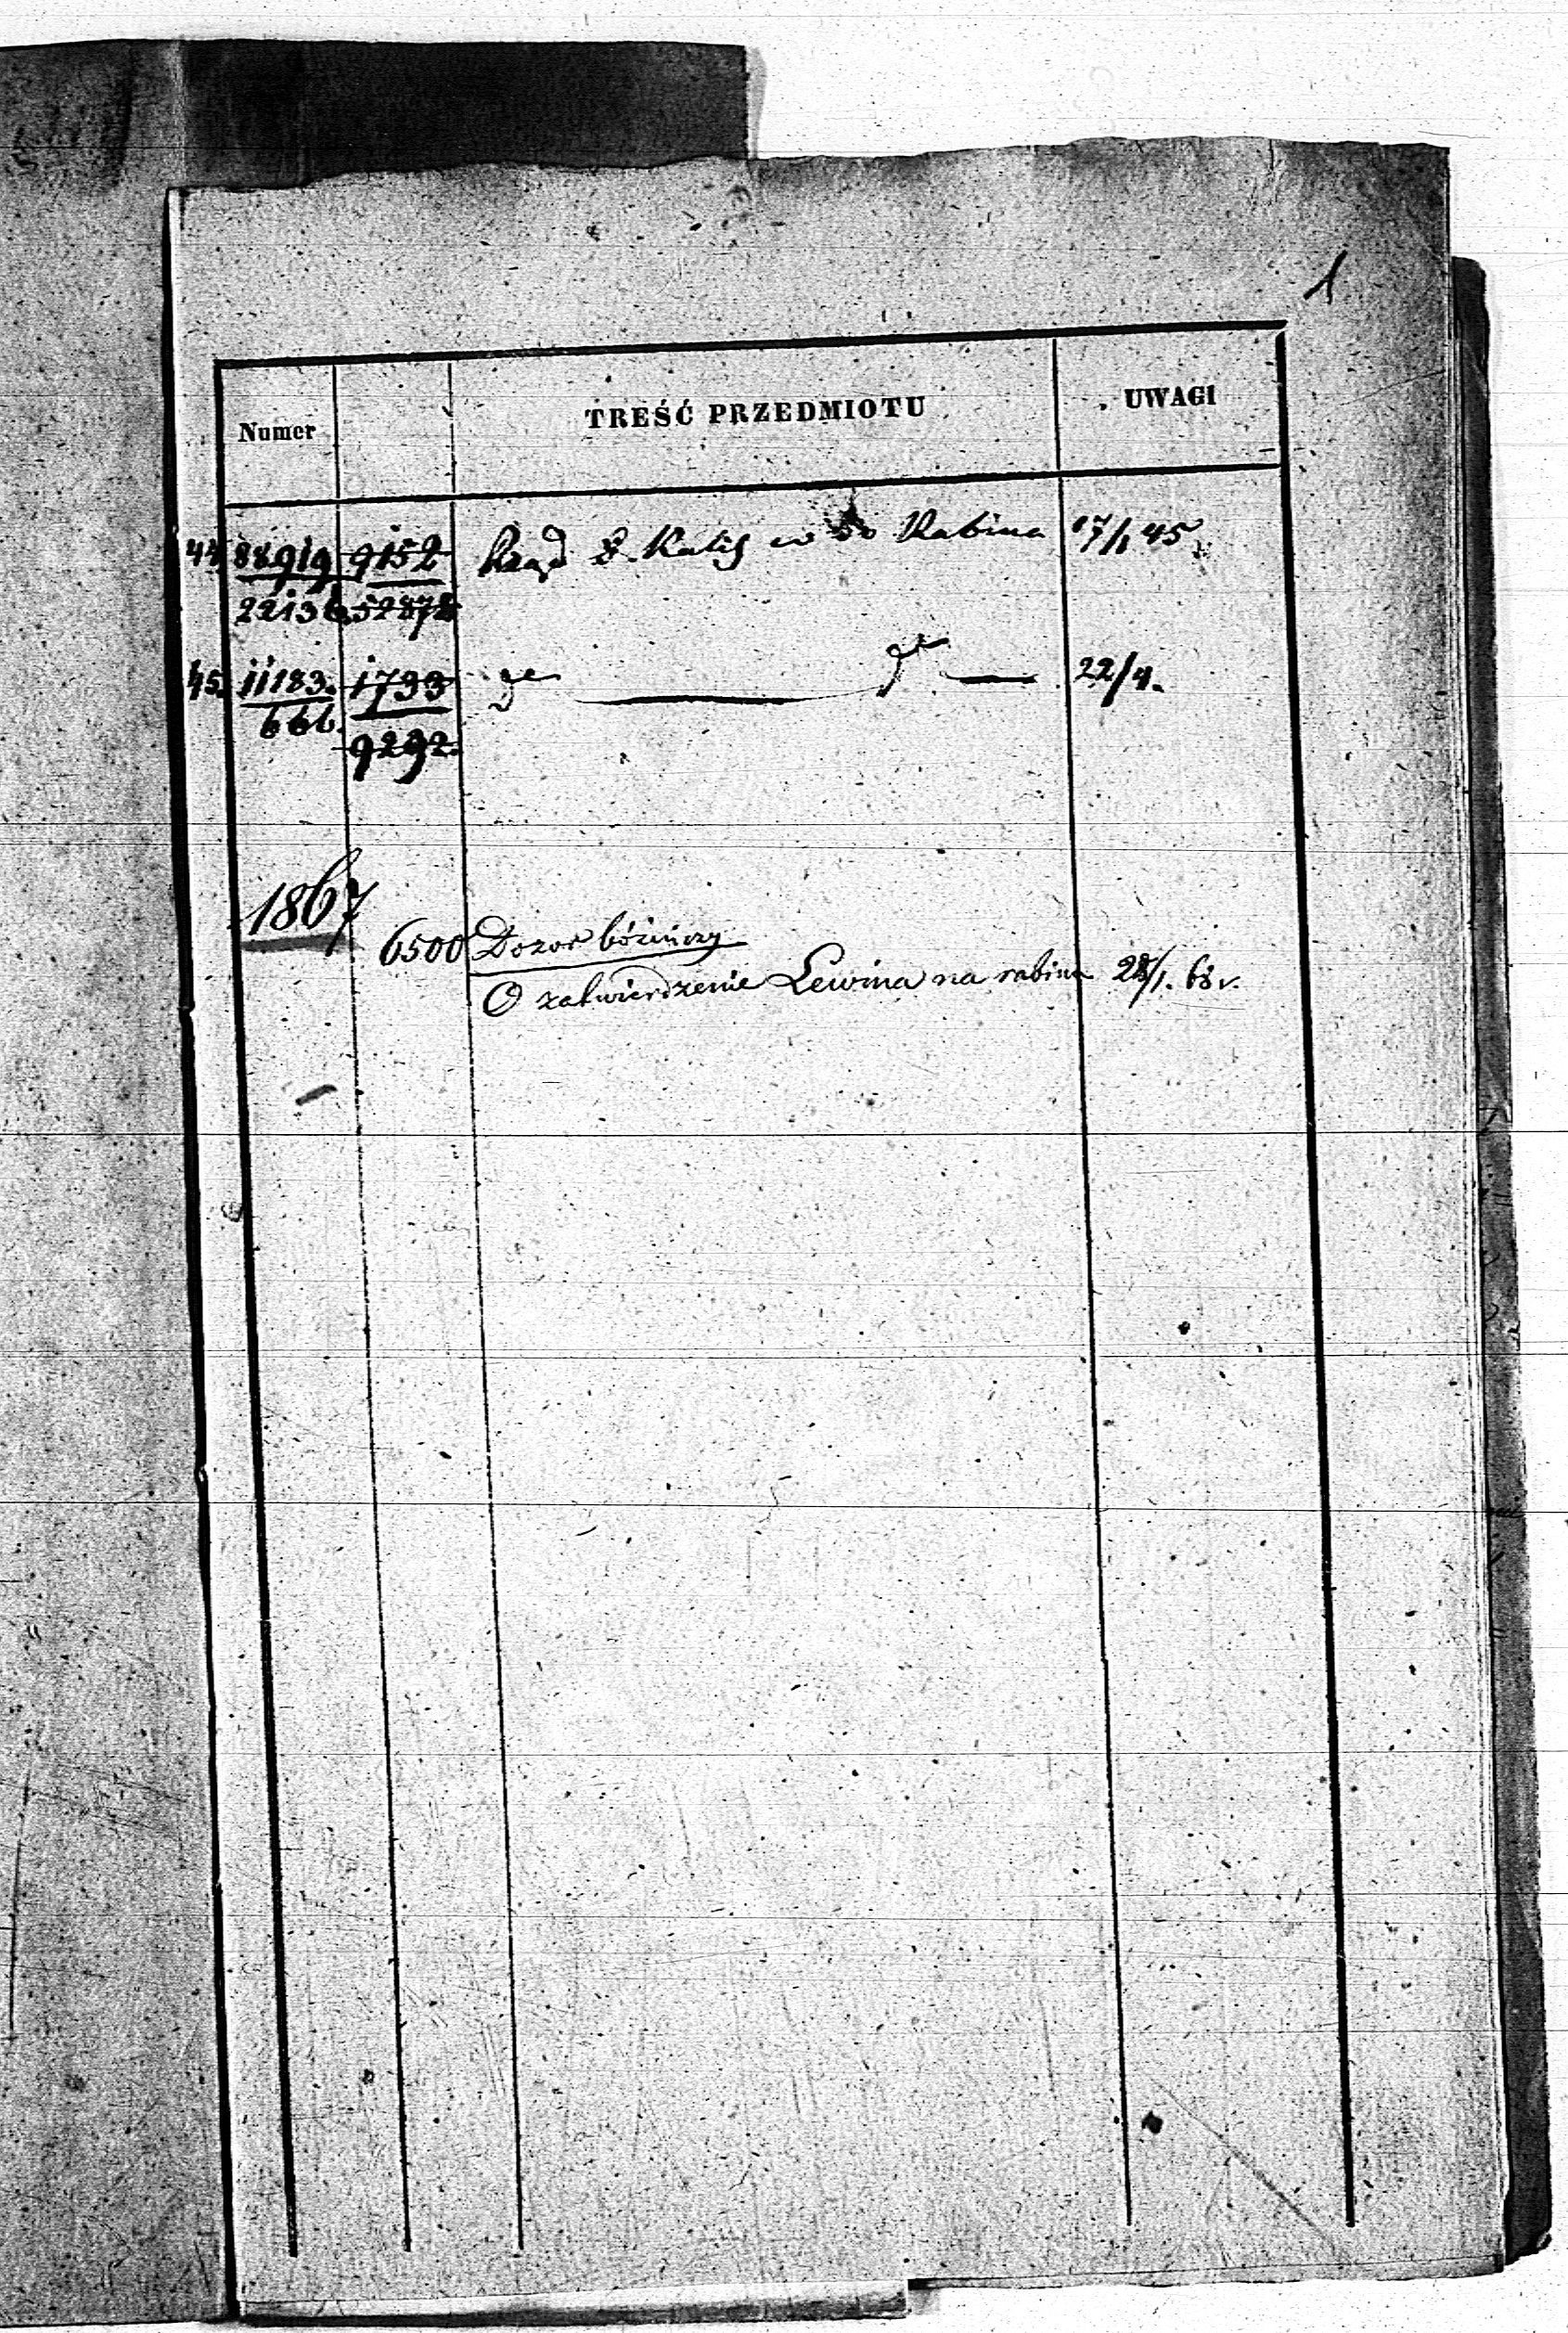 1
Numer TREŚĆ PRZEDMIOTU UWAGI
44 88919 9152 Rząd G. Kalis w do Rabina 17/1 45
22136 52878
45. 11183. 1733 22/4.
661. 9292.
1867
6500 Dozor bóżniczy
O zatwierdzenie Lewina na rabina 28/1. 68 r.